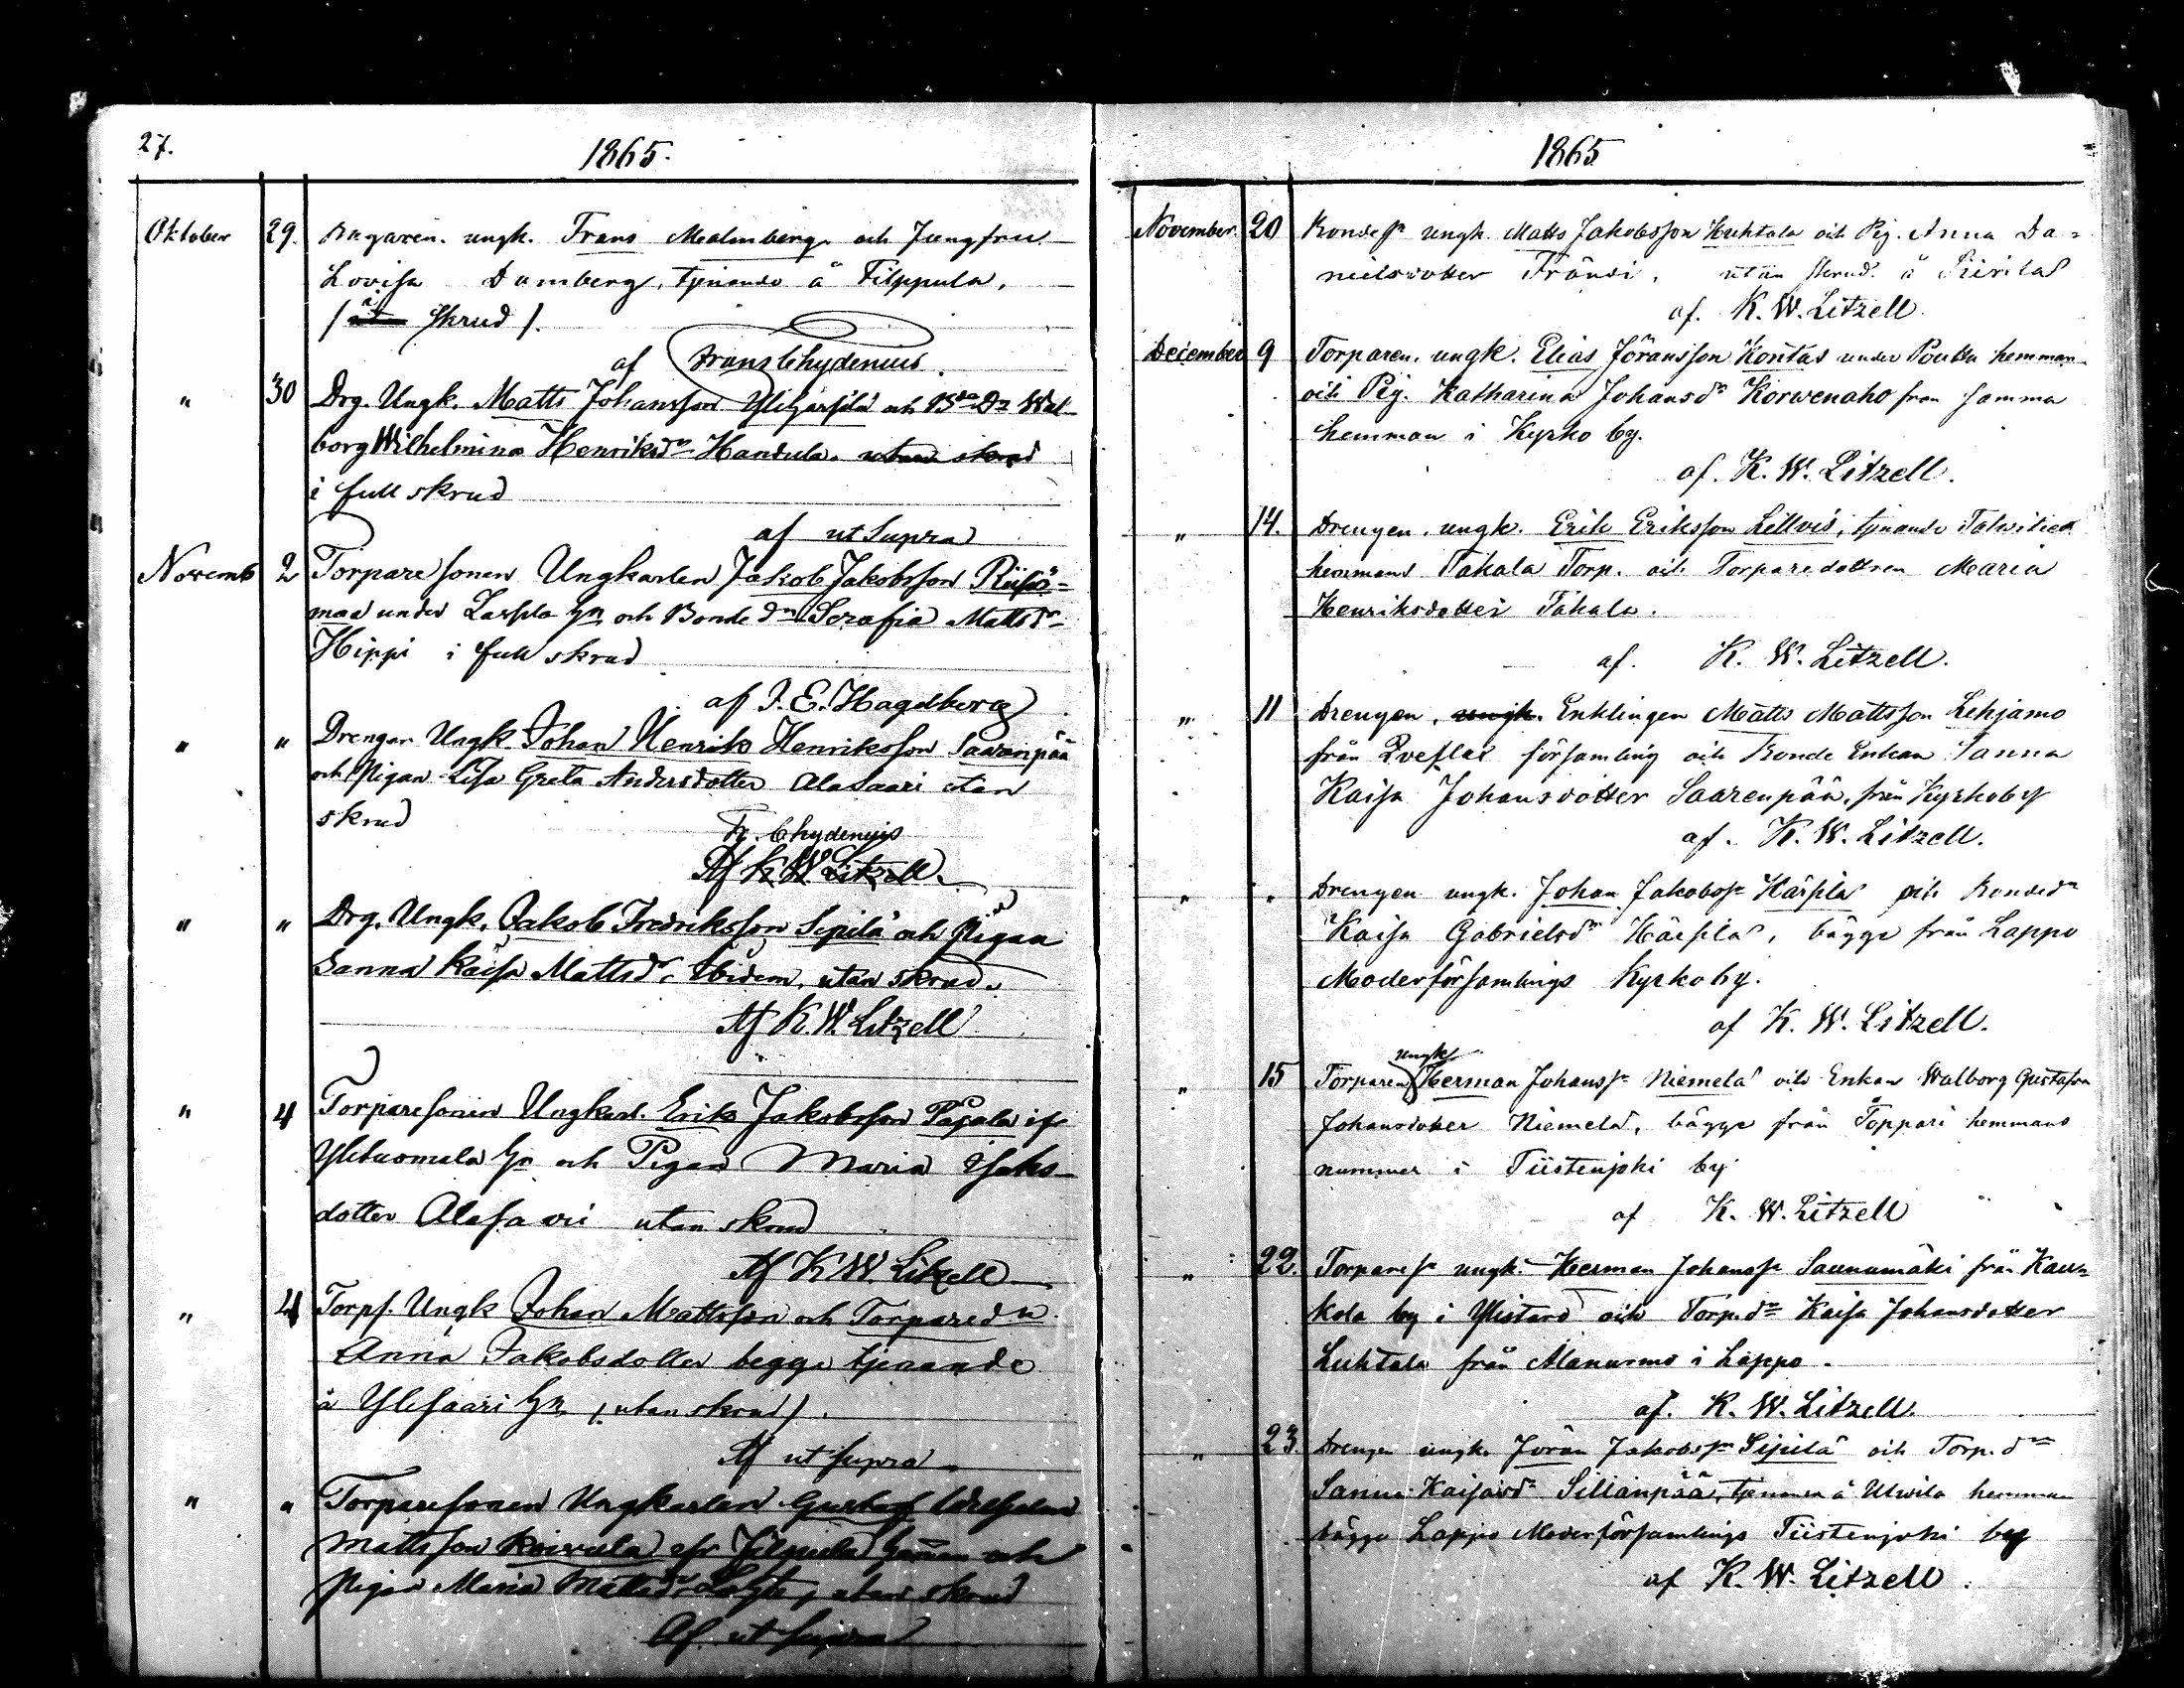 27.
1865.
Oktober 29. Bagaren. ungk. Frans Malmberg. och Jungfru
Lovisa Dumberg, tjenande å Filppula,
/ i skrud /.
af Frans Chydenius.
" 30 Drg. Ungk. Matts Johansson Ylihärsilä och Bde Dr Wal-
borg Wilhelmina Henriksdr Handula. utan skrud
i full skrud
af ut Supra
Novemb 2 Torpare sonen Ungkarlen Jakob Jakobsson Riihi-
maa under Laspla hn och Bonde dn Serafia Mattsdr
Hippi i full skrud
af J. E. Hagelberg
" " Drengen Ungk. Johan Henrik Henriksson Saarenpää
och Pigan Lisa Greta Andersdotter Alasaari utan
skrud
Fr. Chydenius
Af K. W. Litzell.
" " Drg. Ungk. Jakob Fredriksson Sipilä och Pigan
Sanna Kaisa Mattsdr. Ibidem, utan skrud.
Af K. W. Litzell
" 4 Torparesonen Ungkarl. Erik Jakobsson Pasala
Ylituomala hn och Pigan Maria Isaks-
dotter Alasaari utan skrud
Af K. W. Litzell
" 4 Torps. Ungk Johan Mattsson och Torpare dn
Anna Jakobsdotter begge tjenande
å Ylisaari hn / utan skrud /.
Af ut supra.
" " Torparesonen Ungkarlen Gustaf
Mattsson Koivula Filpula hemman och
Pigan Maria Mattsdr utan skrud
Af ut supra
1865
November. 20 Bondesn ungk. Matts Jakobsson Huhtala och Pig. Anna Da-
nielsdotter Frändi, utan skrud. å Piirila
af. K. W. Litzell.
December 9 Torparen. ungk. Elias Jöransson Kontas under Pouttu hemman
och Pig. Katharina Johansdr Korwenaho från samma
hemman i Kyrko by.
af. K. W. Litzell.
" 14. Drengen. ungk. Erik Eriksson Lillvis, tjenande Talwitie
hemmans Takala Torp. och Torparedottren Maria
Henriksdotter Takala.
af. K. W. Litzell.
" 11 Drengen, ungk. Enklingen Matts Mattsson Lehjamo
från Qveflax församling och Bonde Enkan Sanna
Kaisa Johansdotter Saarenpää, från Kyrkoby
af. K. W. Litzell.
" " Drengen ungk. Johan Jakobssn Härsilä och Bondedr
Kaisa Gabrielsdr Härsilä, bägge från Lappo
Moderförsamlings Kyrkoby.
af K. W. Litzell.
ungk
" 15 Torparen Herman Johanssn Niemelä och Enkan Walborg Gustafva
Johansdotter Niemelä, bägge från Toppari hemmans
nummer i Tiistenjoki by
af K. W. Litzell
" 22. Torparesn ungk. Herman Johanssn Saunamäki från Kau-
kola by i Ylistaro och Torp. dr Kaisa Johansdotter
Luhtala från Alanurmo i Lappo.
af. K. W. Litzell.
" 23. Drengen ungk. Jöran Jakobssn Sipilä och Torp. dr
Sanna Kaisasdr Sillanpää, tjenande å Ulwila hemman
bägge Lappo Moderförsamlings Tiistenjoki by
af K. W. Litzell.